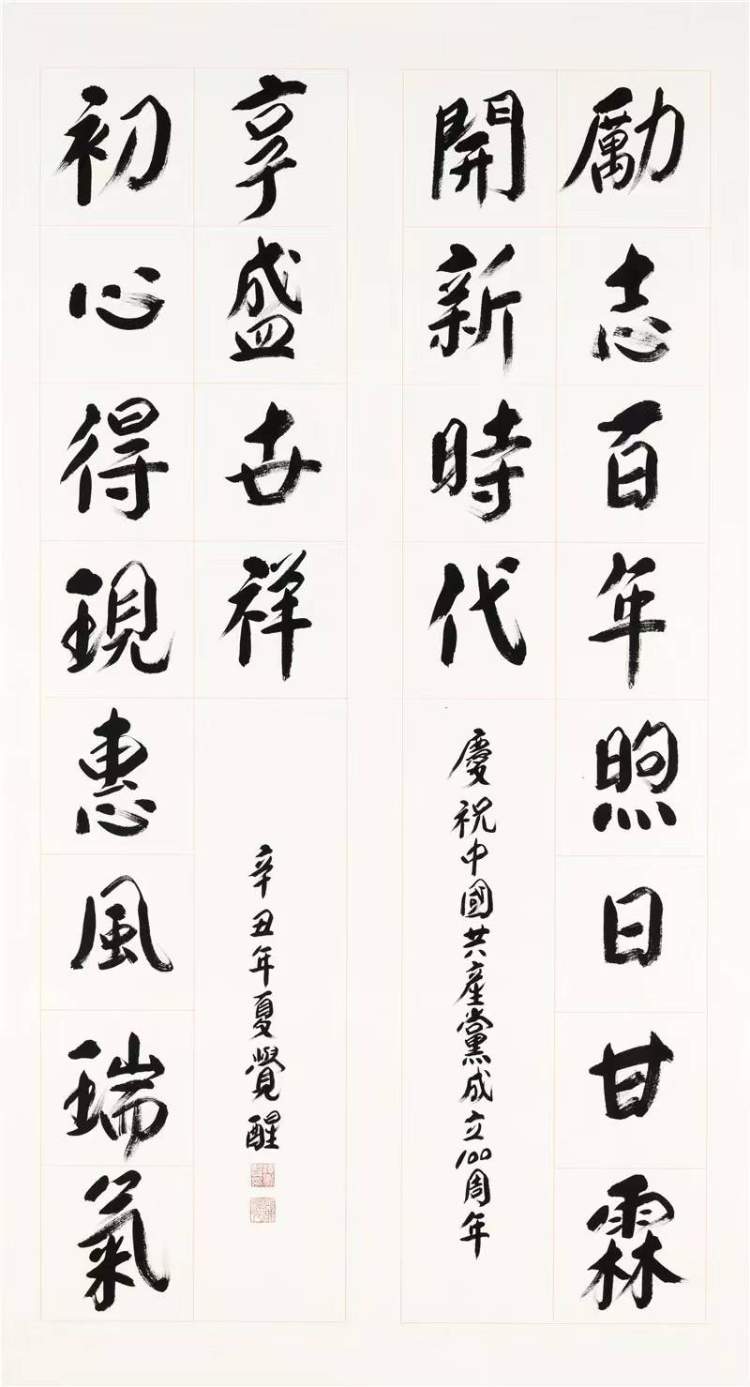 勵志百年煦日甘霖
開新時代
慶祝中國共產黨成立100周年
初心得現惠風瑞氣
享盛世祥
辛丑年夏覺醒